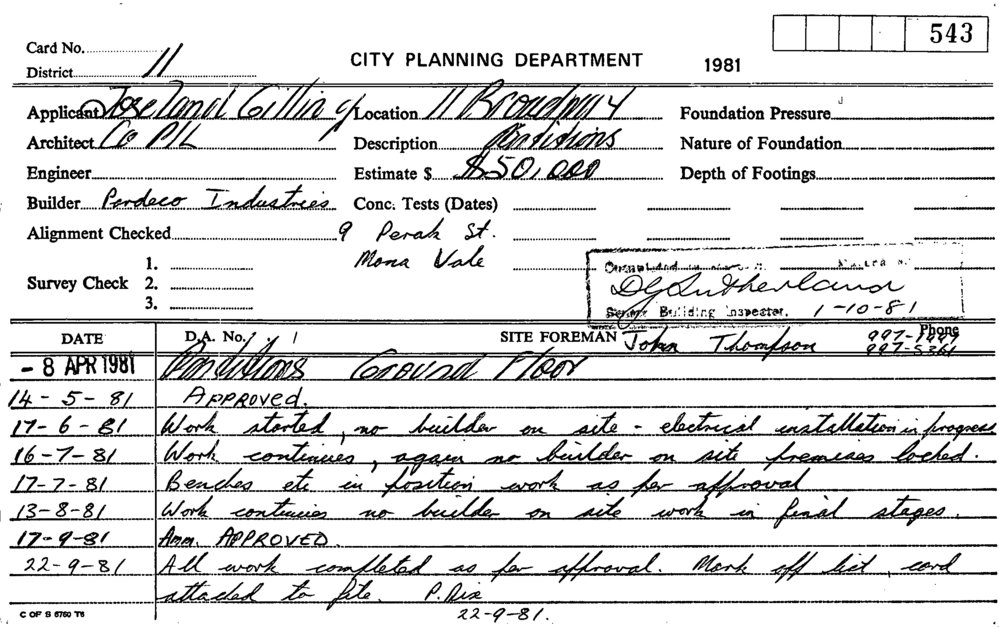 543
Card No.
District 11
CITY PLANNING DEPARTMENT 1981
Applicant Joseland Gilling Location 11 Broadway Foundation Pressure
Architect Co P/L Description Partitions Nature of Foundation
Engineer Estimate $ $50,000 Depth of Footings
Builder Perdeco Industries Conc. Tests (Dates)
Alignment Checked 9 Perak St.
Mona Vale
Survey Check 1.
2.
3.
DG Sutherland
Senior Building Inspector. 1-10-81
DATE D.A. No. SITE FOREMAN John Thompson Phone
997-5361
- 8 APR 1981 Partitions Ground Floor
14-5-81 APPROVED.
17-6-81 Work started, no builder on site - electrical installation in progress
16-7-81 Work continues, again no builder on site premises locked.
17-7-81 Benches etc in position work as per approval
13-8-81 Work continues no builder on site work in final stages.
17-9-81 Amm. APPROVED.
22-9-81 All work completed as per approval. Mark off list, card
attached to file. P. Dix
22-9-81.
C OF S 6760 T6